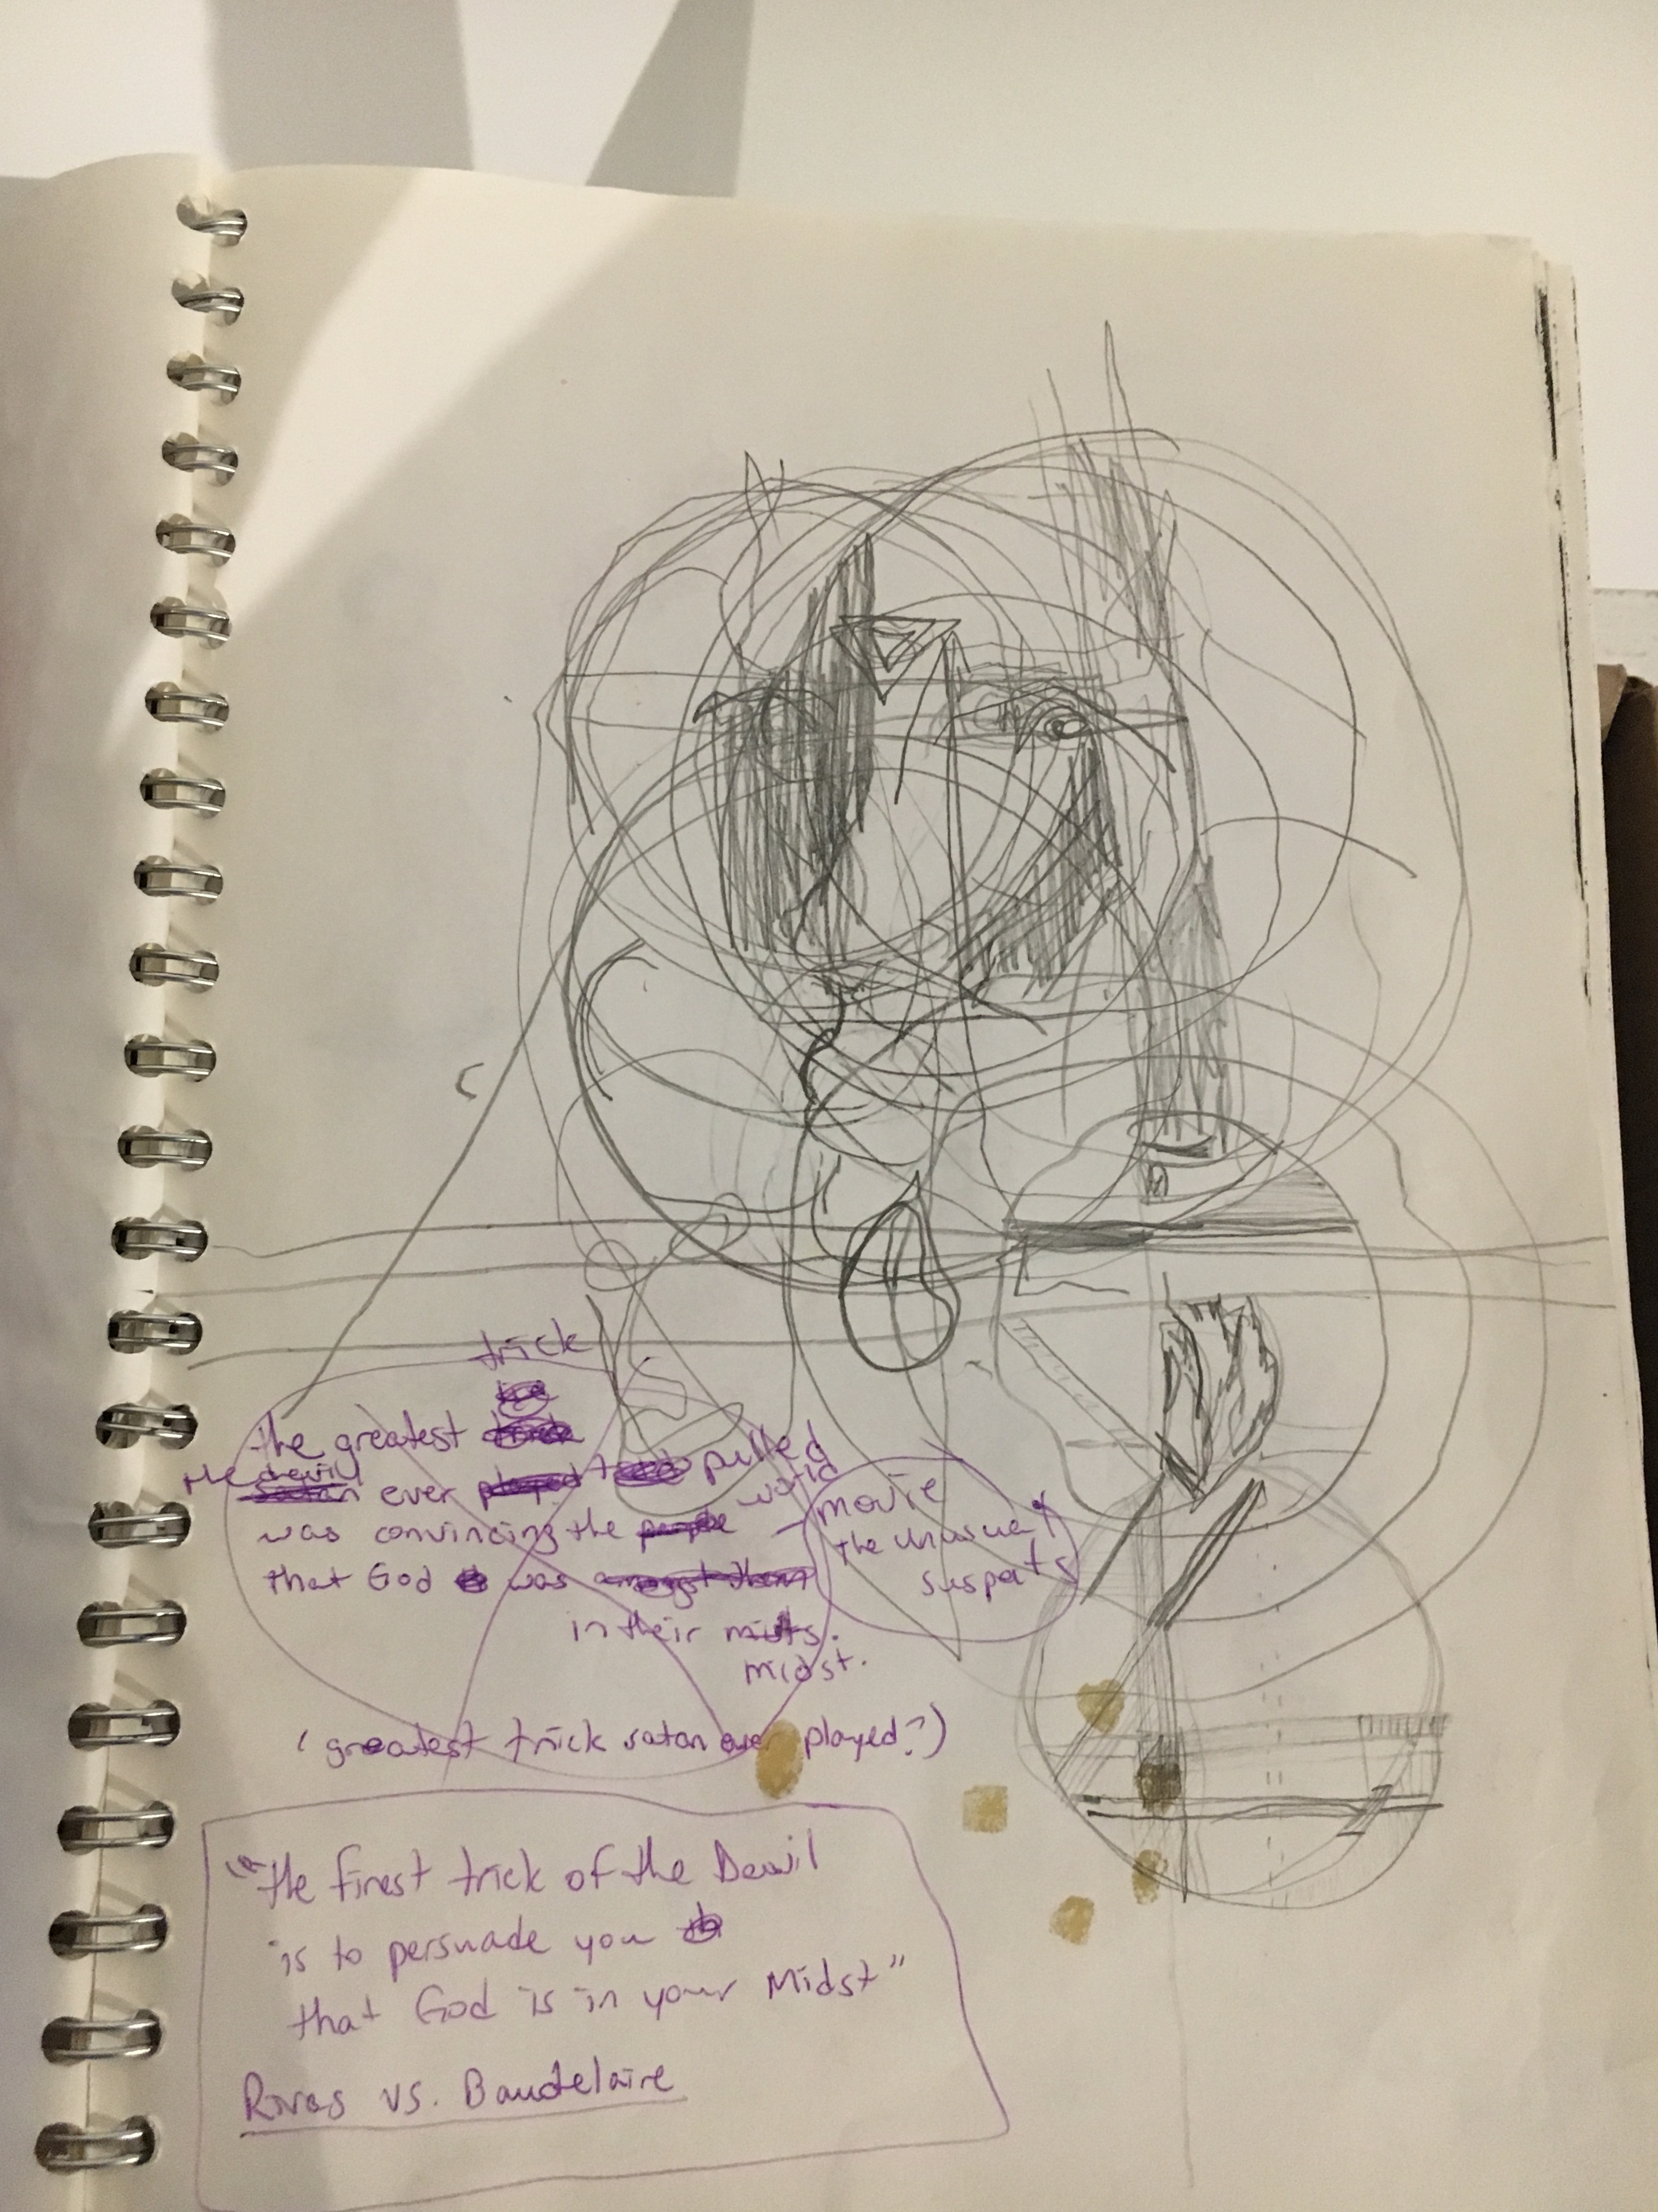 trick
the greatest
the devil
satan ever played pulled
was convincing the people world
that God was amongst them
in their midts.
midst.
movie
the unusual
suspects
(greatest trick satan ever played?)
"the finest trick of the Devil
is to persuade you
that God is in your Midst"
Rivas vs. Baudelaire